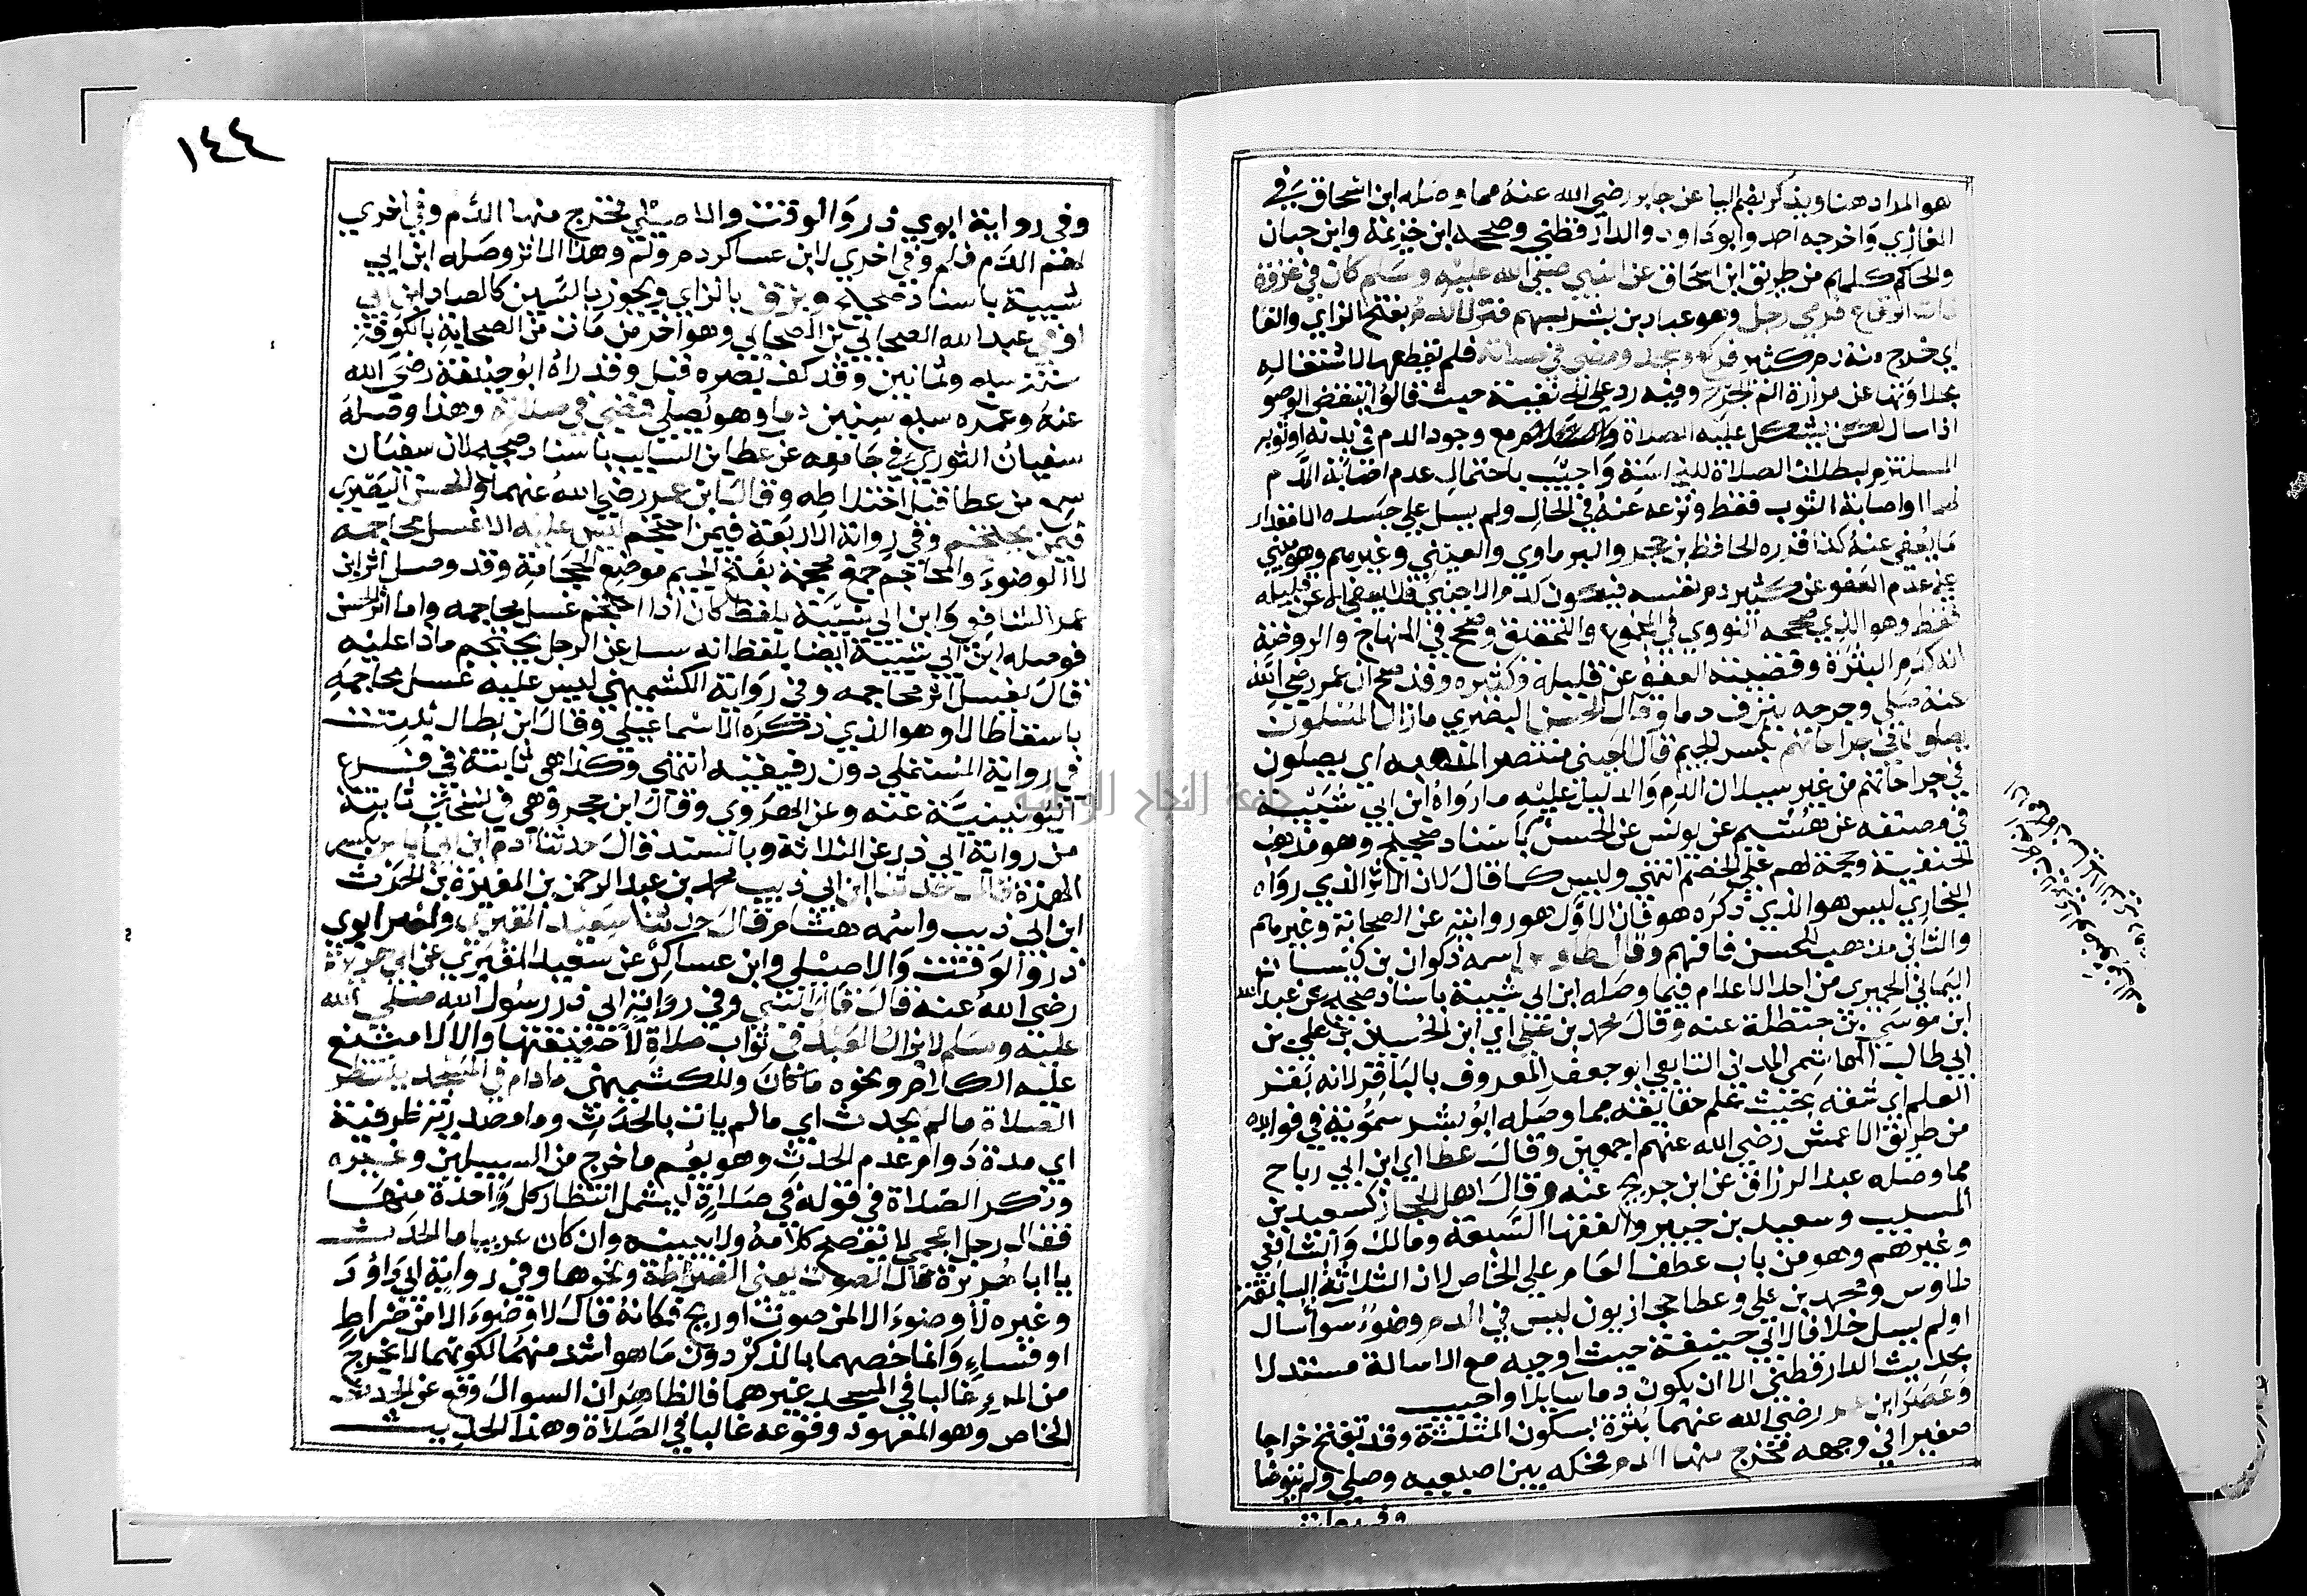 هو المراد هنا ويذكر بضم اليا عن جابر رضي الله عنه مما وصله ابن اسحاق في
المغازي واخرجه احمد وابوداود والدارقطني وصححه ابن خزيمة وابن حبان
والحاكم كلهم من طريق ابن اسحاق عن النبي صلي الله عليه وسلم كان في غزوة
ذات الرقاع فرمي رجل وهو عباد بن بشر بسهم فنزفه الدم بفتح الزاي والفا
اي خرج منه دم كثير فركع وسجد ومضي في صلاته فلم يقطعها لاشتغاله
بحلاوتها عن مرارة الم الجرح وفيه رد علي الحنفية حيث قالوا ينتقض الوضو
اذا سال لكن يشكل عليه الصلاة مع وجود الدم في بدنه او ثوبه
المستلزم لبطلان الصلاة للنجاسة واجيب باحتمال عدم اصابة الدم
لهما او اصابة الثوب فقط ونزعه عنه في الحال ولم يسل علي جسده الا مقدار
ما يعفي عنه كذا قرره الحافظ بن حجر والبرماوي والعيني وغيرهم وهو مبني
علي عدم العفو عن كثير دم نفسه فيكون كدم الاجنبي فلا يعفي الا عن قليله
فقط وهو الذي صححه النووي في المجموع والتحقيق وصحح في المنهاج والروضة
انه كدم البثرة وقضيته العفو عن قليله وكثيره وقد صح ان عمر رضي الله
عنه صلي وجرحه ينزف دما وقال الحسن البصري مازال المسلمون
يصلون في جراحاتهم بكسر الجيم قال العيني منتصرا لمذهبه اي يصلون
في جراحاتهم من غير سيلان الدم والدليل عليه ما رواه ابن ابي شيبة
في مصنفه عن هشيم عن يونس عن الحسن باسناد صحيح وهو مذهب
الحنفية وحجة لهم علي الخصم انتهي وليس كما قال لان الاثر الذي رواه
البخاري ليس هو الذي ذكره هو فان الاول هو روايته عن الصحابة وغيرهم
والثاني مذهب للحسن فافهم وقال طاوس اسمه ذكوان بن كيسان
اليماني الحميري من احد الاعلام فيما وصله ابن ابي شيبة باسناد صحيح عن عبد الله
ابن موسي بن حنظلة عنه وقال محمد بن علي اي ابن الحسين بن علي بن
ابي طالب الهاشمي المدني التابعي ابو جعفر المعروف بالباقر لانه بقر
العلم اي شقه بحيث علم حقايقه مما وصله ابو بشر سمويه في فوايده
من طريق الاعمش رضي الله عنهم اجمعين وقال عطا اي ابن ابي رباح
مما وصله عبد الرزاق عن ابن جريج عنه وقال اهل الحجاز كسعيد بن
المسيب وسعيد بن جبير والفقها السبعة ومالك والشافعي
وغيرهم وهو من باب عطف العام علي الخاص لان الثلاثة السابقة
طاوس ومحمد بن علي وعطا حجازيون ليس في الدم وضوء سوا سال
او لم يسل خلافا لابي حنيفة حيث اوجبه مع الاسالة مستدلا
بحديث الدارقطني الا ان يكون دما سايلا واجيب
وعصر ابن عمر رضي الله عنهما بثرة بسكون المثلثة وقد تفتح خراجا
صغيرا في وجهه فخرج منها الدم فحكه بين اصبعيه وصلي ولم يتوضا
وفي رواية
١٤٤
وفي رواية ابوي ذر والوقت والاصيلي فخرج منها الدم وفي اخري
لهم الدم فلم وفي اخري لابن عساكر دم ولم وهذا الاثر وصله ابن ابي
شيبة باسناد صحيح وبزق بالزاي ويجوز بالسين كالصاد ابن ابي
اوفي عبد الله الصحابي بن الصحابي وهو اخر من مات من الصحابة بالكوفة
سنة سبع وثمانين وقد كف بصره قبل وقد راه ابو حنيفة رضي الله
عنه وعمره سبع سنين دما وهو يصلي فمضي في صلاته وهذا وصله
سفيان الثوري في جامعه عن عطا بن السايب باسناد صحيح لان سفيان
سمع من عطا قبل اختلاطه وقال ابن عمر رضي الله عنهما والحسن البصري
فيمن يحتجم وفي رواية الاربعة فيمن احتجم ليس عليه الا غسل محاجمه
لا الوضوء والمحاجم جمع محجمة بفتح الجيم موضع الحجامة وقد وصل اثر ابن
عمر الشافعي وابن ابي شيبة بلفظ كان اذا احتجم غسل محاجمه واما اثر الحسن
فوصله ابن ابي شيبة ايضا بلفظ انه سل عن الرجل يحتجم ماذا عليه
قال يغسل اثر محاجمه وفي رواية الكشميهني ليس عليه غسل محاجمه
باسقاط الا وهو الذي ذكره الاسماعيلي وقال ابن بطال ثبتت
في رواية المستملي دون رفيقيه انتهي وكذا هي ثابتة في فرع
اليونينية عنه وعن الهروي وقال ابن حجر وهي في نسختي ثابتة
من رواية ابي ذر عن الثلاثة وبالسند قال حدثنا ادم ابن ابي اياس بكسر
الهمزة قال حدثنا ابن ابي ذيب محمد بن عبد الرحمن بن المغيرة بن الحرث
ابن ابي ذيب واسمه هشام قال حدثنا سعيد المقبري ولغير ابوي
ذر والوقت والاصيلي وابن عساكر عن سعيد المقبري عن ابي هريرة
رضي الله عنه قال قال النبي وفي رواية ابي ذر رسول الله صلي الله
عليه وسلم لا يزال العبد في ثواب صلاة لا حقيقتها والا لامتنع
عليه الكلام ونحوه ما كان وللكشميهني مادام في المسجد ينتظر
الصلاة ما لم يحدث اي ما لم يات بالحدث وما مصدرية ظرفية
اي مدة دوام عدم الحدث وهو يعم ما خرج من السبيلين وغيره
ونكر الصلاة في قوله في صلاة ليشمل انتظار كل واحدة منها
فقال رجل اعجمي لا يفصح كلامه ولا يبينه وان كان عربيا ما الحدث
يا ابا هريرة قال الصوت يعني الضرطة ونحوها وفي رواية ابي داود
وغيره لا وضوء الا من صوت او ريح فكانه قال لا وضوء الا من ضراط
او فساء وانما خصهما بالذكر دون ما هو اشد منهما لكونهما لا يخرج
من المرء غالبا في المسجد غيرهما فالظاهر ان السوال وقع عن الحدث
الخاص وهو المعهود وقوعه غالبا في الصلاة وهذا الحديث
جامعة النجاح الوطنية